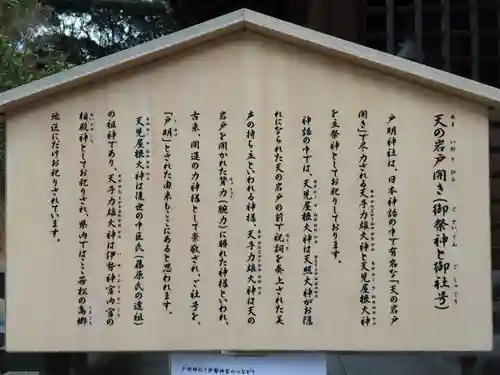 天の岩戸開き(御祭神と御社号)
戸明神社は、日本神話の中で有名な「天の岩戸
開き」で尽力される天手力雄大神と天児屋根大神
を主祭神としてお祀りしております。
神話の中では、天児屋根大神は天照大神がお隠
れになられた天の岩戸の前で祝詞を奏上された美
声の持ち主といわれる神様、天手力雄大神は天の
岩戸を開かれた膂力(腕力)に勝れた神様といわれ、
古来、開運の力神様として崇敬され、ご社号を、
「戸明」とされた由来もここにあると思われます。
天児屋根大神は後世の中臣氏(藤原氏の遠祖)
の祖神であり、天手力雄大神は伊勢神宮内宮の
相殿神としてお祀りされ、県内ではここ若松の島郷
地区にだけお祀りされています。
戸明神社と伊勢神宮のつながり